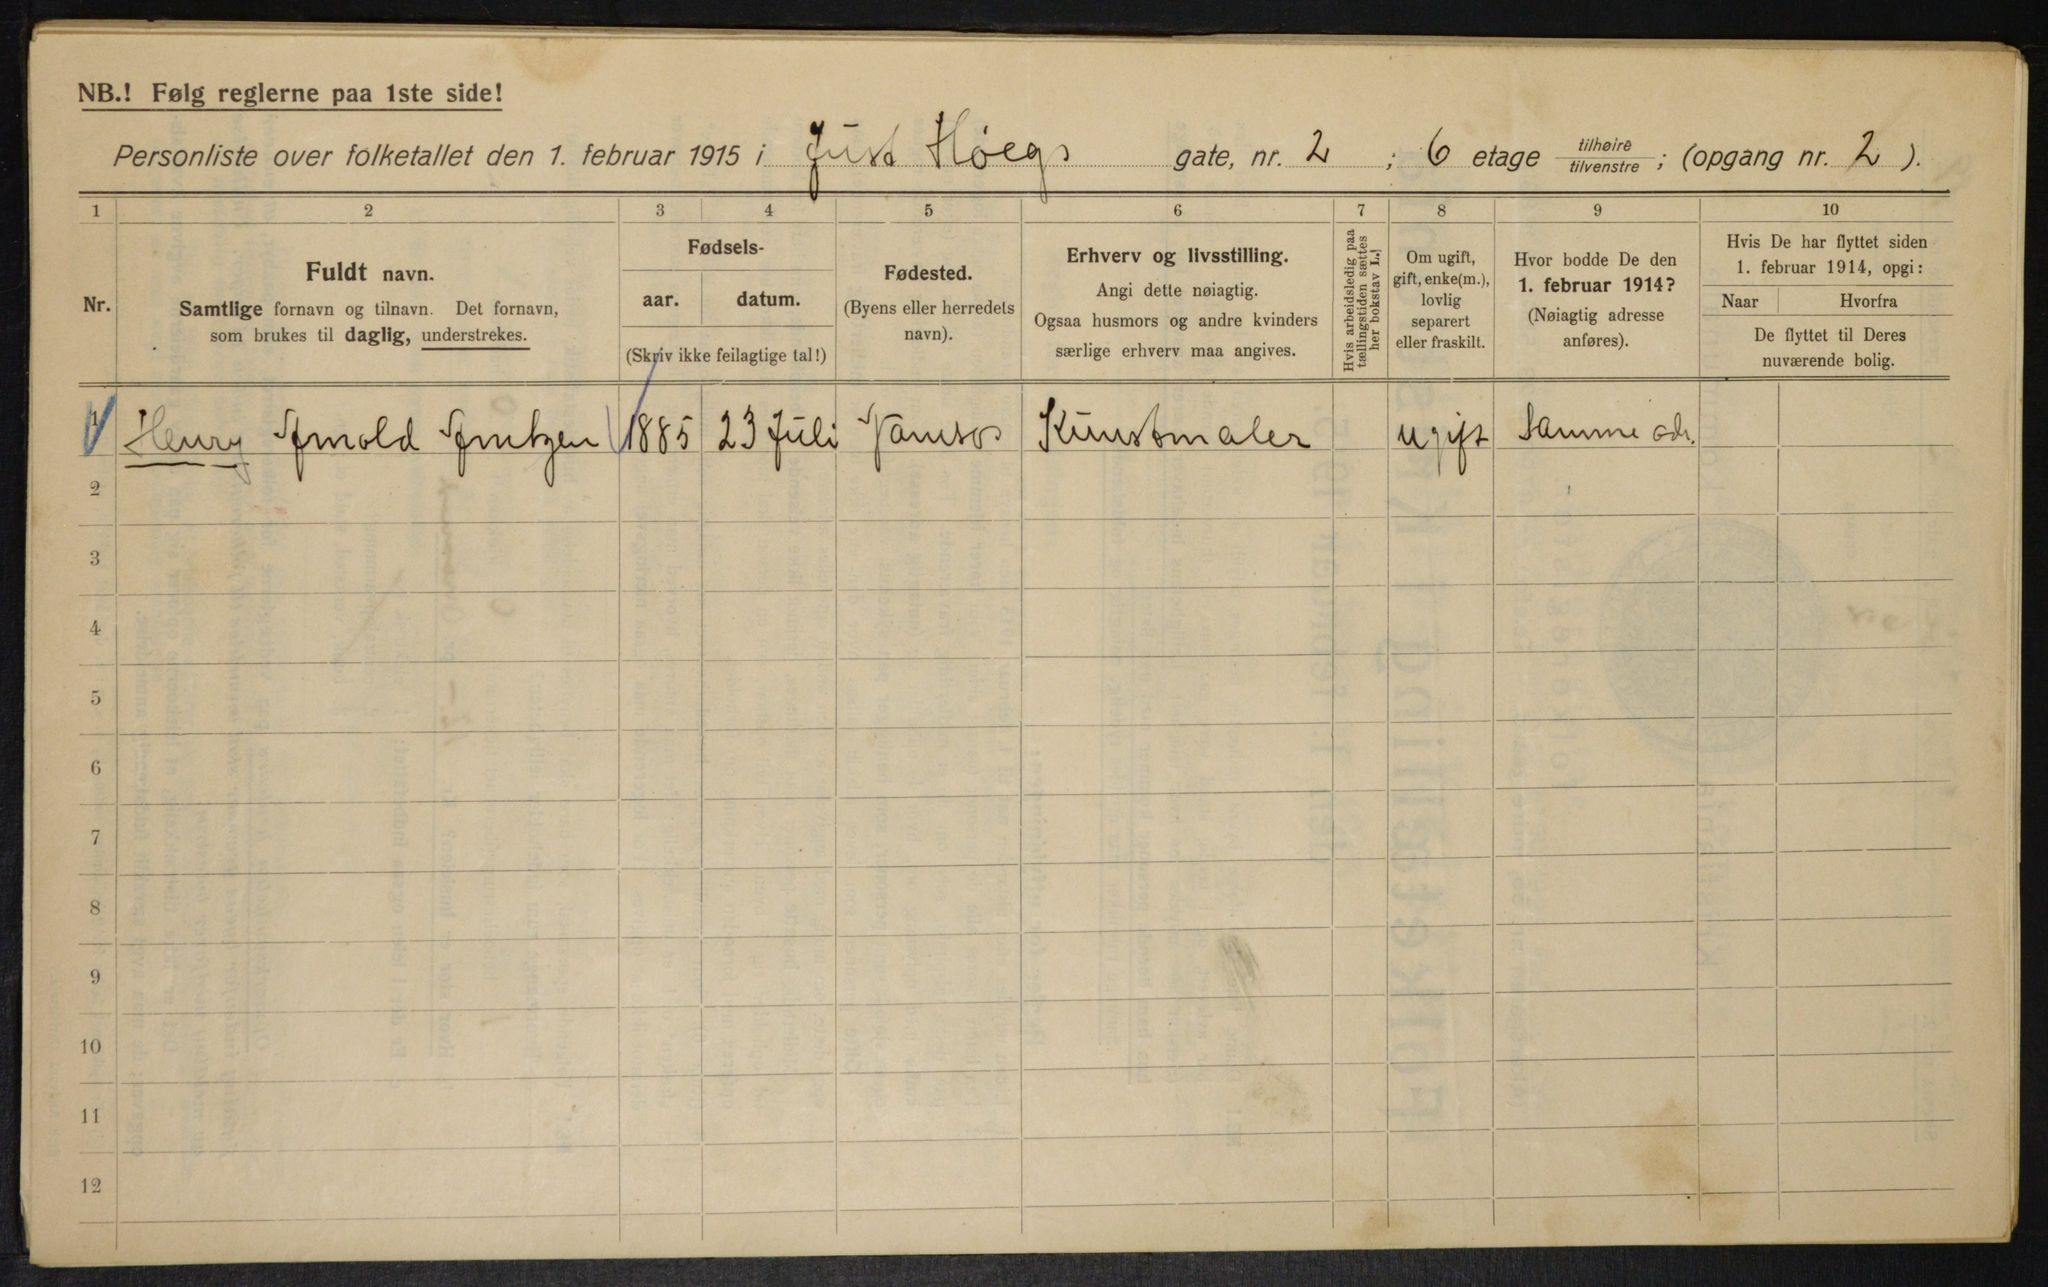 NB.! Følg reglerne paa 1ste side!
Personliste over folketallet den 1. februar 1915 i Just Høegs gate, nr. 2 ; 6 etage tilhøire tilvenstre ; (opgang nr. 2 ).
1 2 3 4 5 6 7 8 9 10
Nr.
Fuldt navn.
Samtlige fornavn og tilnavn. Det fornavn,
som brukes til daglig, understrekes.
Fødsels-
aar. datum.
(Skriv ikke feilagtige tal!)
Fødested.
(Byens eller herredets
navn).
Erhverv og livsstilling.
Angi dette nøiagtig.
Ogsaa husmors og andre kvinders
særlige erhverv maa angives.
Hvis arbeidsledig paa
tællingstiden sættes
her bokstav L.!
Om ugift,
gift, enke(m.),
lovlig
separert
eller fraskilt.
Hvor bodde De den
1. februar 1914?
(Nøiagtig adresse
anføres).
Hvis De har flyttet siden
1. februar 1914, opgi:
Naar Hvorfra
De flyttet til Deres
nuværende bolig.
1 Henry Arnold Arntzen 1885 23 Juli Vamsos Kunstmaler ugift Samme adr.
2
3
4
5
6
7
8
9
10
11
12